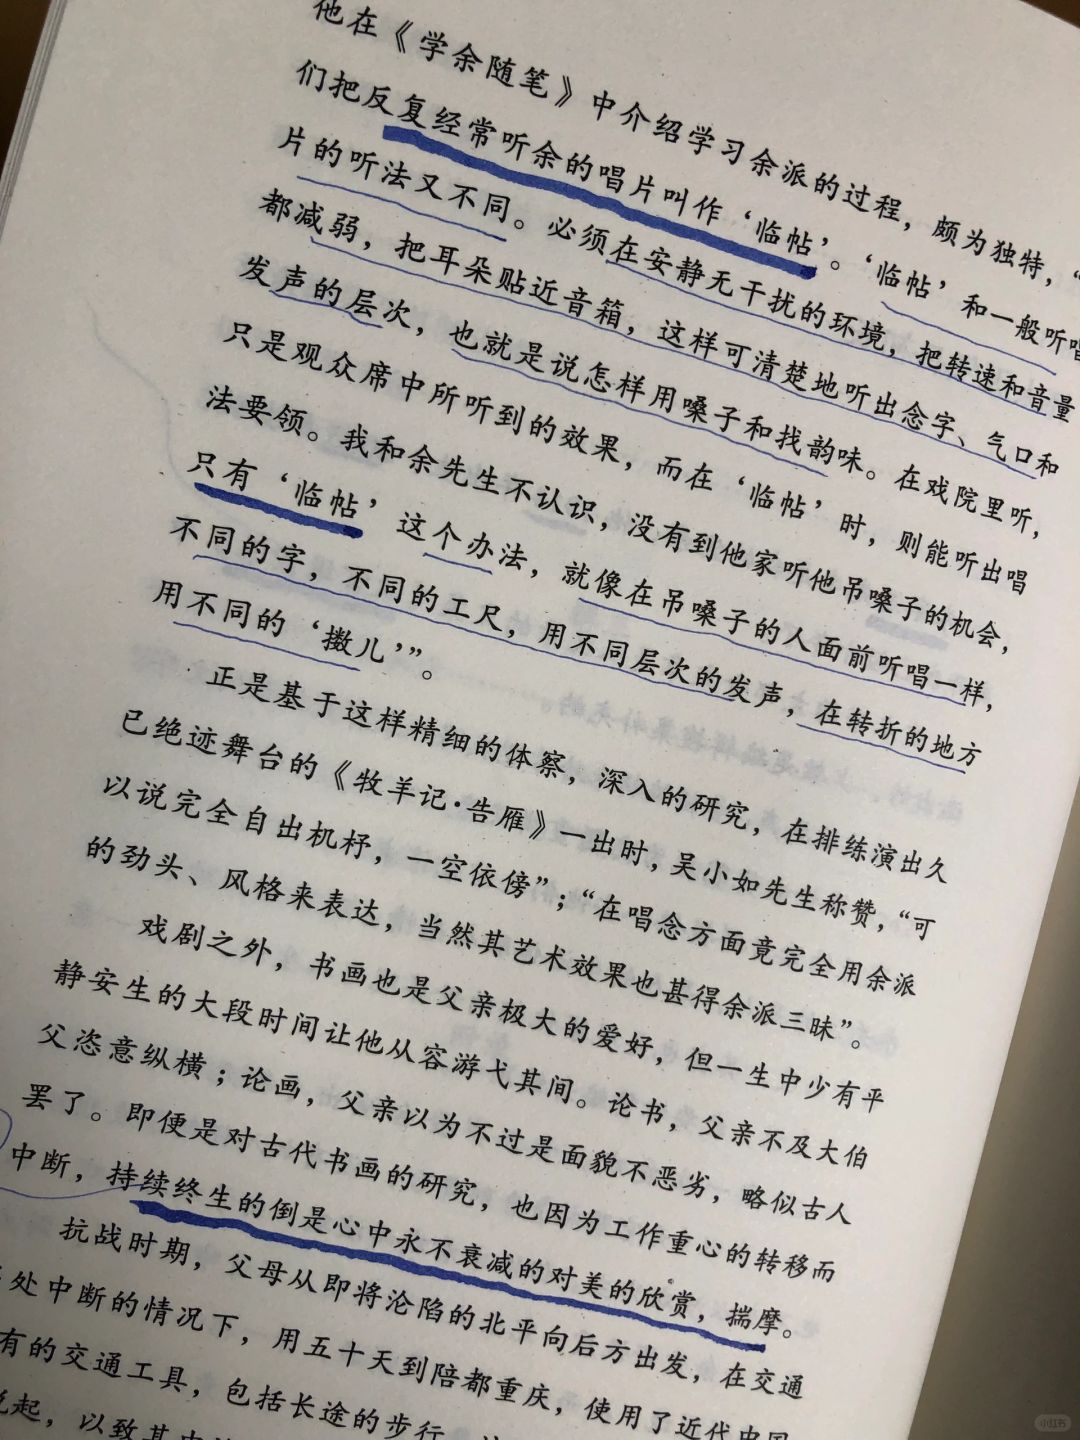 他在《学余随笔》中介绍学习余派的过程，颇为独特，“
们把反复经常听余的唱片叫作‘临帖’。‘临帖’和一般听唱
片的听法又不同。必须在安静无干扰的环境，把转速和音量
都减弱，把耳朵贴近音箱，这样可清楚地听出念字、气口和
发声的层次，也就是说怎样用嗓子和找韵味。在戏院里听，
只是观众席中所听到的效果，而在‘临帖’时，则能听出唱
法要领。我和余先生不认识，没有到他家听他吊嗓子的机会，
只有‘临帖’这个办法，就像在吊嗓子的人面前听唱一样，
不同的字，不同的工尺，用不同层次的发声，在转折的地方
用不同的‘擞儿’”。
正是基于这样精细的体察，深入的研究，在排练演出久
已绝迹舞台的《牧羊记·告雁》一出时，吴小如先生称赞，“可
以说完全自出机杼，一空依傍”；“在唱念方面竟完全用余派
的劲头、风格来表达，当然其艺术效果也甚得余派三昧”。
戏剧之外，书画也是父亲极大的爱好，但一生中少有平
静安生的大段时间让他从容游弋其间。论书，父亲不及大伯
父恣意纵横；论画，父亲以为不过是面貌不恶劣，略似古人
罢了。即便是对古代书画的研究，也因为工作重心的转移而
中断，持续终生的倒是心中永不衰减的对美的欣赏，揣摩。
抗战时期，父母从即将沦陷的北平向后方出发，在交通
处中断的情况下，用五十天到陪都重庆，使用了近代中国
有的交通工具，包括长途的步行
起，以致其中
小红书